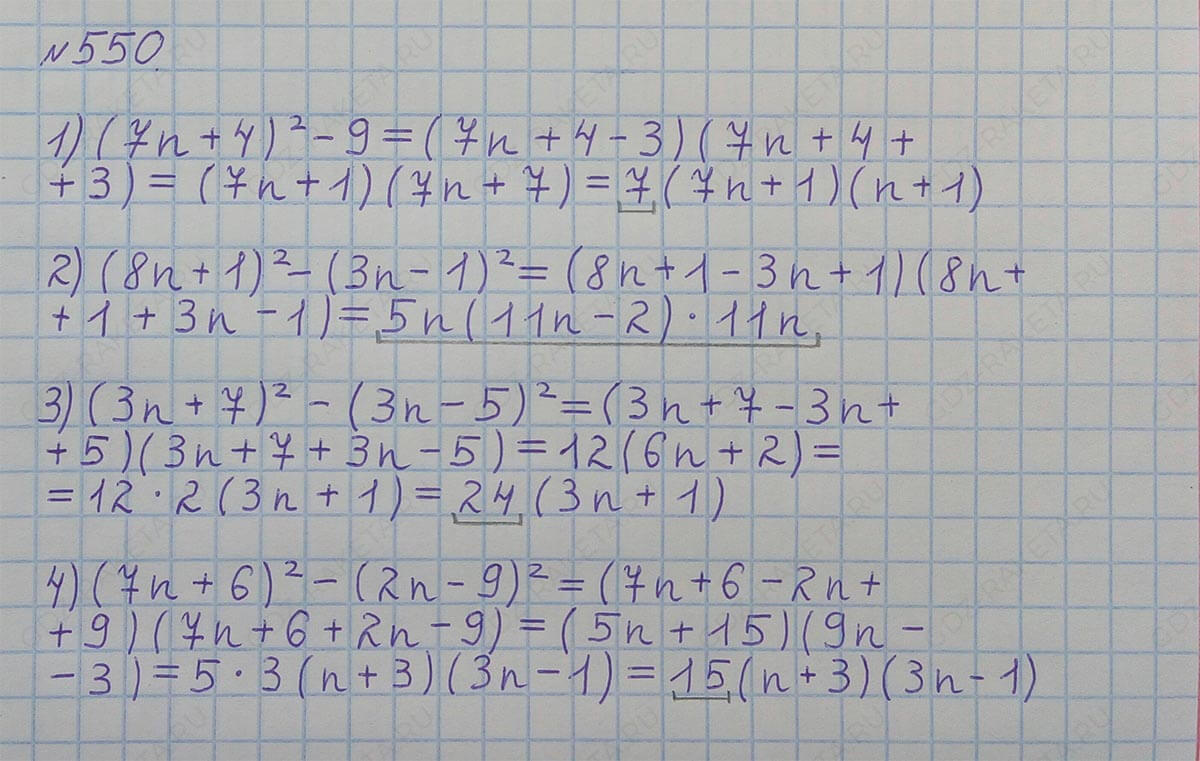 №550.
1) (7n + 4)² - 9 = (7n + 4 - 3) (7n + 4 +
+ 3) = (7n + 1) (7n + 7) = 7 (7n + 1) (n + 1)
2) (8n + 1)² - (3n - 1)² = (8n + 1 - 3n + 1) (8n +
+ 1 + 3n - 1) = 5n (11n - 2) · 11n
3) (3n + 7)² - (3n - 5)² = (3n + 7 - 3n +
+ 5) (3n + 7 + 3n - 5) = 12 (6n + 2) =
= 12 · 2 (3n + 1) = 24 (3n + 1)
4) (7n + 6)² - (2n - 9)² = (7n + 6 - 2n +
+ 9) (7n + 6 + 2n - 9) = (5n + 15) (9n -
- 3) = 5 · 3 (n + 3) (3n - 1) = 15 (n + 3) (3n - 1)